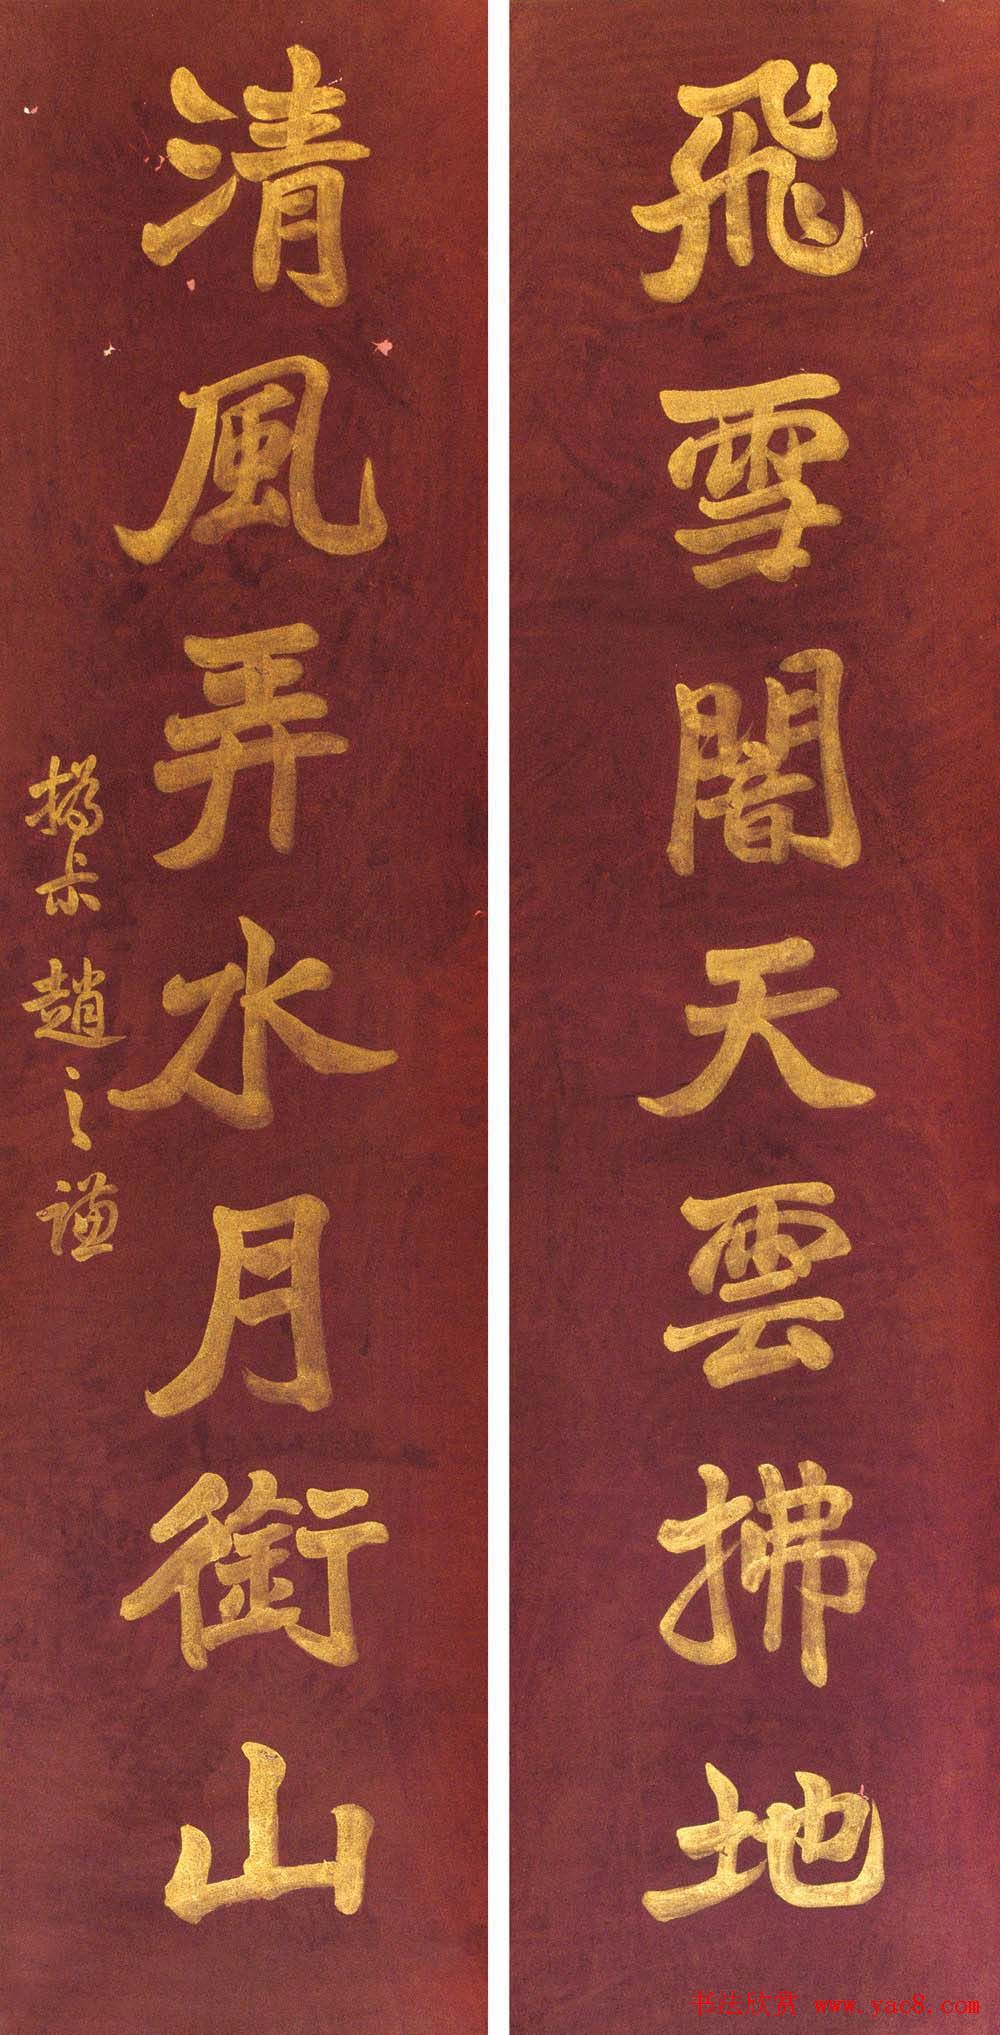 飛雪闇天雲拂地
清風弄水月銜山
撝尗趙之謙
书法欣赏 www.yac8.com